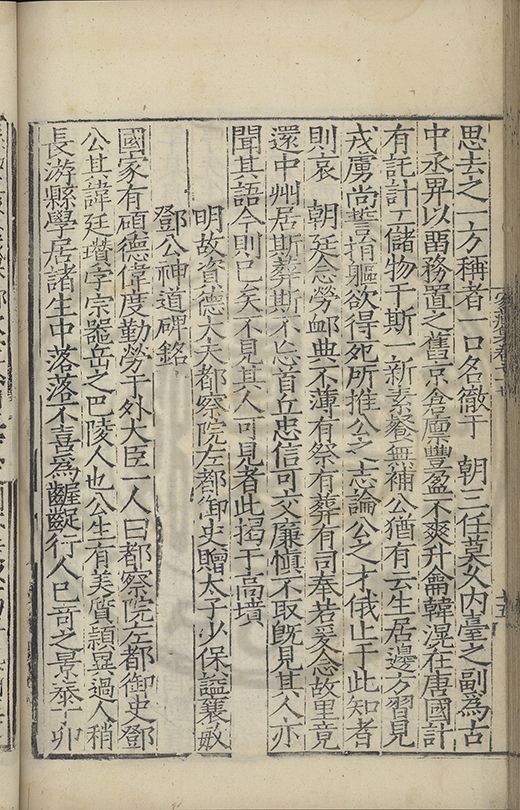 思去之一方稱者一口名徹于　朝三任莫久內臺之副為古
中丞畀以畱務置之舊京倉廪豐盈不爽升龠韓滉在唐國計
有託計工儲物于斯一新素餐無補公猶有云生居邊方習見
戎虜尚誓捐軀欲得死所推公之志論公之才俄止于此知者
則哀　朝廷念勞䘏典不薄有祭有葬有司奉若爰念故里竟
還中州居斯葬斯不忘首丘忠信可交廉慎不取旣見其人亦
聞其語今則已矣不見其人可見者此揭于高墳
明故資德大夫都察院左都御史贈太子少保謚襄敏
鄧公神道碑銘
國家有碩德偉度勤勞于外大臣一人曰都察院左都御史鄧
公其諱廷瓚字宗器岳之巴陵人也公生有美質頴異過人稍
長游縣學居諸生中落落不喜為齷齪行人已竒之景泰丁卯